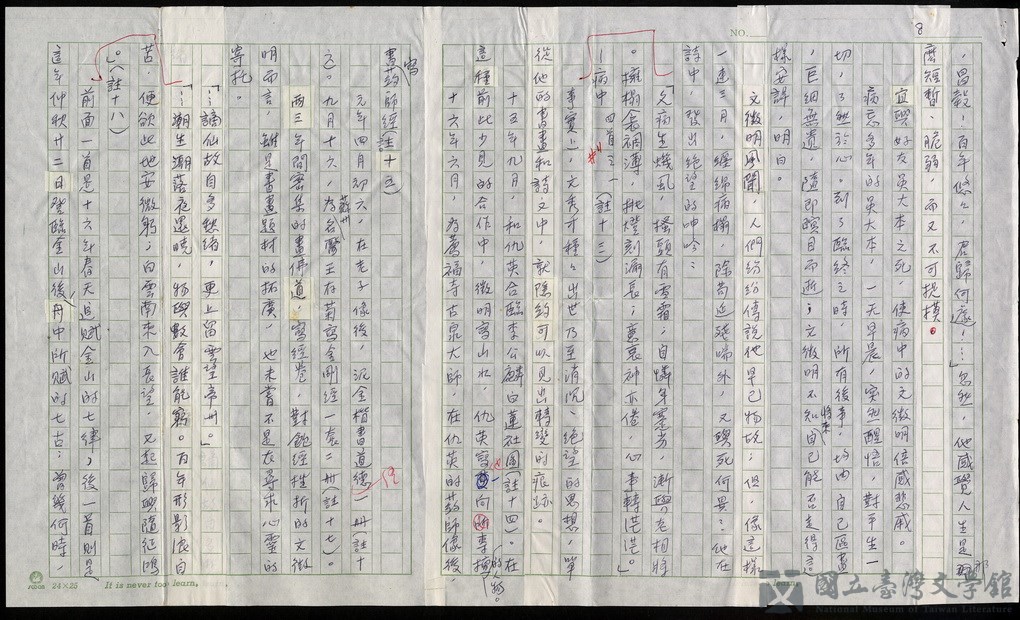 NO.
8
，昌穀！百年悠悠，君歸何遽，…」忽然，他感覺人生是那
麼短暫、脆弱，而又不可捉摸。
宜興好友吳大本之死，使病中的文徵明倍感悲慼。
病忘多年的吳大本，一天早晨，突然醒悟，對平生一
切，了然於心。到了臨終之時，所有後事，均由自己區畫
，巨細無遺，隨即瞑目而逝；文徵明不知自己將來能否走得這
樣安詳，明白。
文徵明風聞，人們紛紛傳說他早已物故；但，像這樣
一連三月，纏綿病榻，除苟延殘喘外，又與死何異；他在
詩中，發出絕望的呻吟：
「久病生幾風，搔頭有雪霜；自憐年蹇劣，漸與老相將
。擁榻衾裯薄，挑燈刻漏長；衰衰神亦倦，心事轉茫茫。」
－病中四首之一（註十三）
事實上，文秀才種種出世乃至消沉、絕望的思想，單
從他的書畫和詩文中，就隱約可以見出轉變的痕跡。
十五年九月，和仇英合臨李公麟白蓮社圖（註十四）。在
這種前此少見的合作中，徵明寫山水，仇英寫一向所李擅的人物。
十六年六月，為薦福寺古泉大師，在仇英的藥師像後，
寫藥師經（註十五）
元年四月初六，在老子像後，泥金楷書道德一冊（註十
六）。九月十六，為蘇州谷醫王存菊寫金剛經一卷二冊（註十七）。
兩三年間密集的畫佛道，寫經卷，對飽經挫折的文徵
明而言，雖是書畫題材的拓廣，也未嘗不是在尋求心靈的
寄托。
「…謫仙故自多愁緒，更上留雲望帝州。」
「…潮生潮落夜還曉，物與數會誰能窮。百年形影浪自
苦，便欲此地安微躬；白雲南來入長望，又起歸興隨征鴻
。」（註十八）
前面一首是十六年春天追賦金山的七律；後一首則是
這年仲秋廿二日登臨金山後，舟中所賦的七古；曾幾何時，
24×25 It is never too learn.
國立臺灣文學館
National Museum of Taiwan Literature